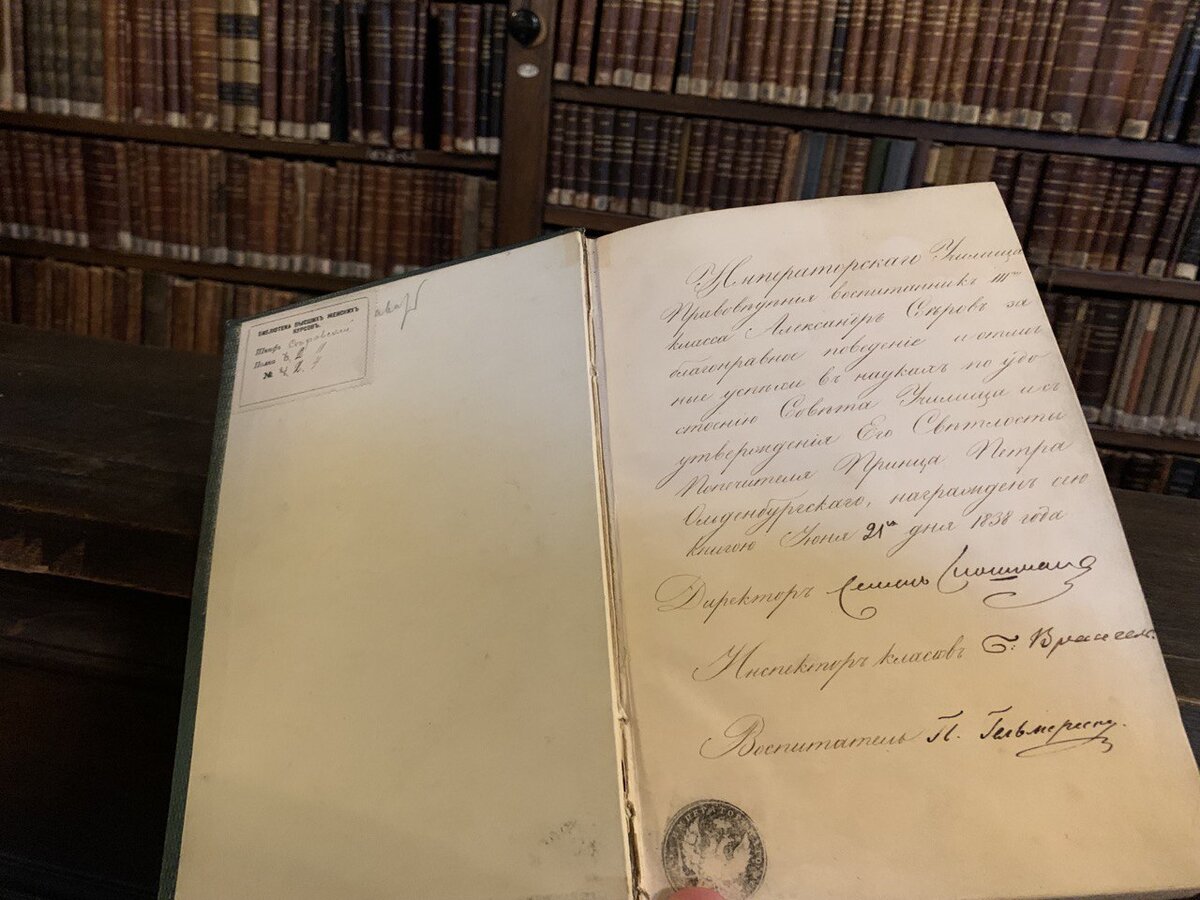 БИБЛИОТЕКА ВЫСШИХЪ ЖЕНСКИХЪ
КУРСОВЪ.
Шкафъ Сѣровскій
Полка
№
Императорскаго Училища
Правовѣдѣнія воспитанникъ
класса Александръ Сѣровъ за
благонравное поведеніе и отлич
ные успѣхи въ наукахъ по удо
стоенію Совѣта Училища и съ
утвержденія Его Свѣтлости
Попечителя Принца Петра
Ольденбургскаго, награжденъ сею
книгою Іюня 21го дня 1838 года
Директоръ Семенъ
Инспекторъ класовъ Б. Врангель.
Воспитатель